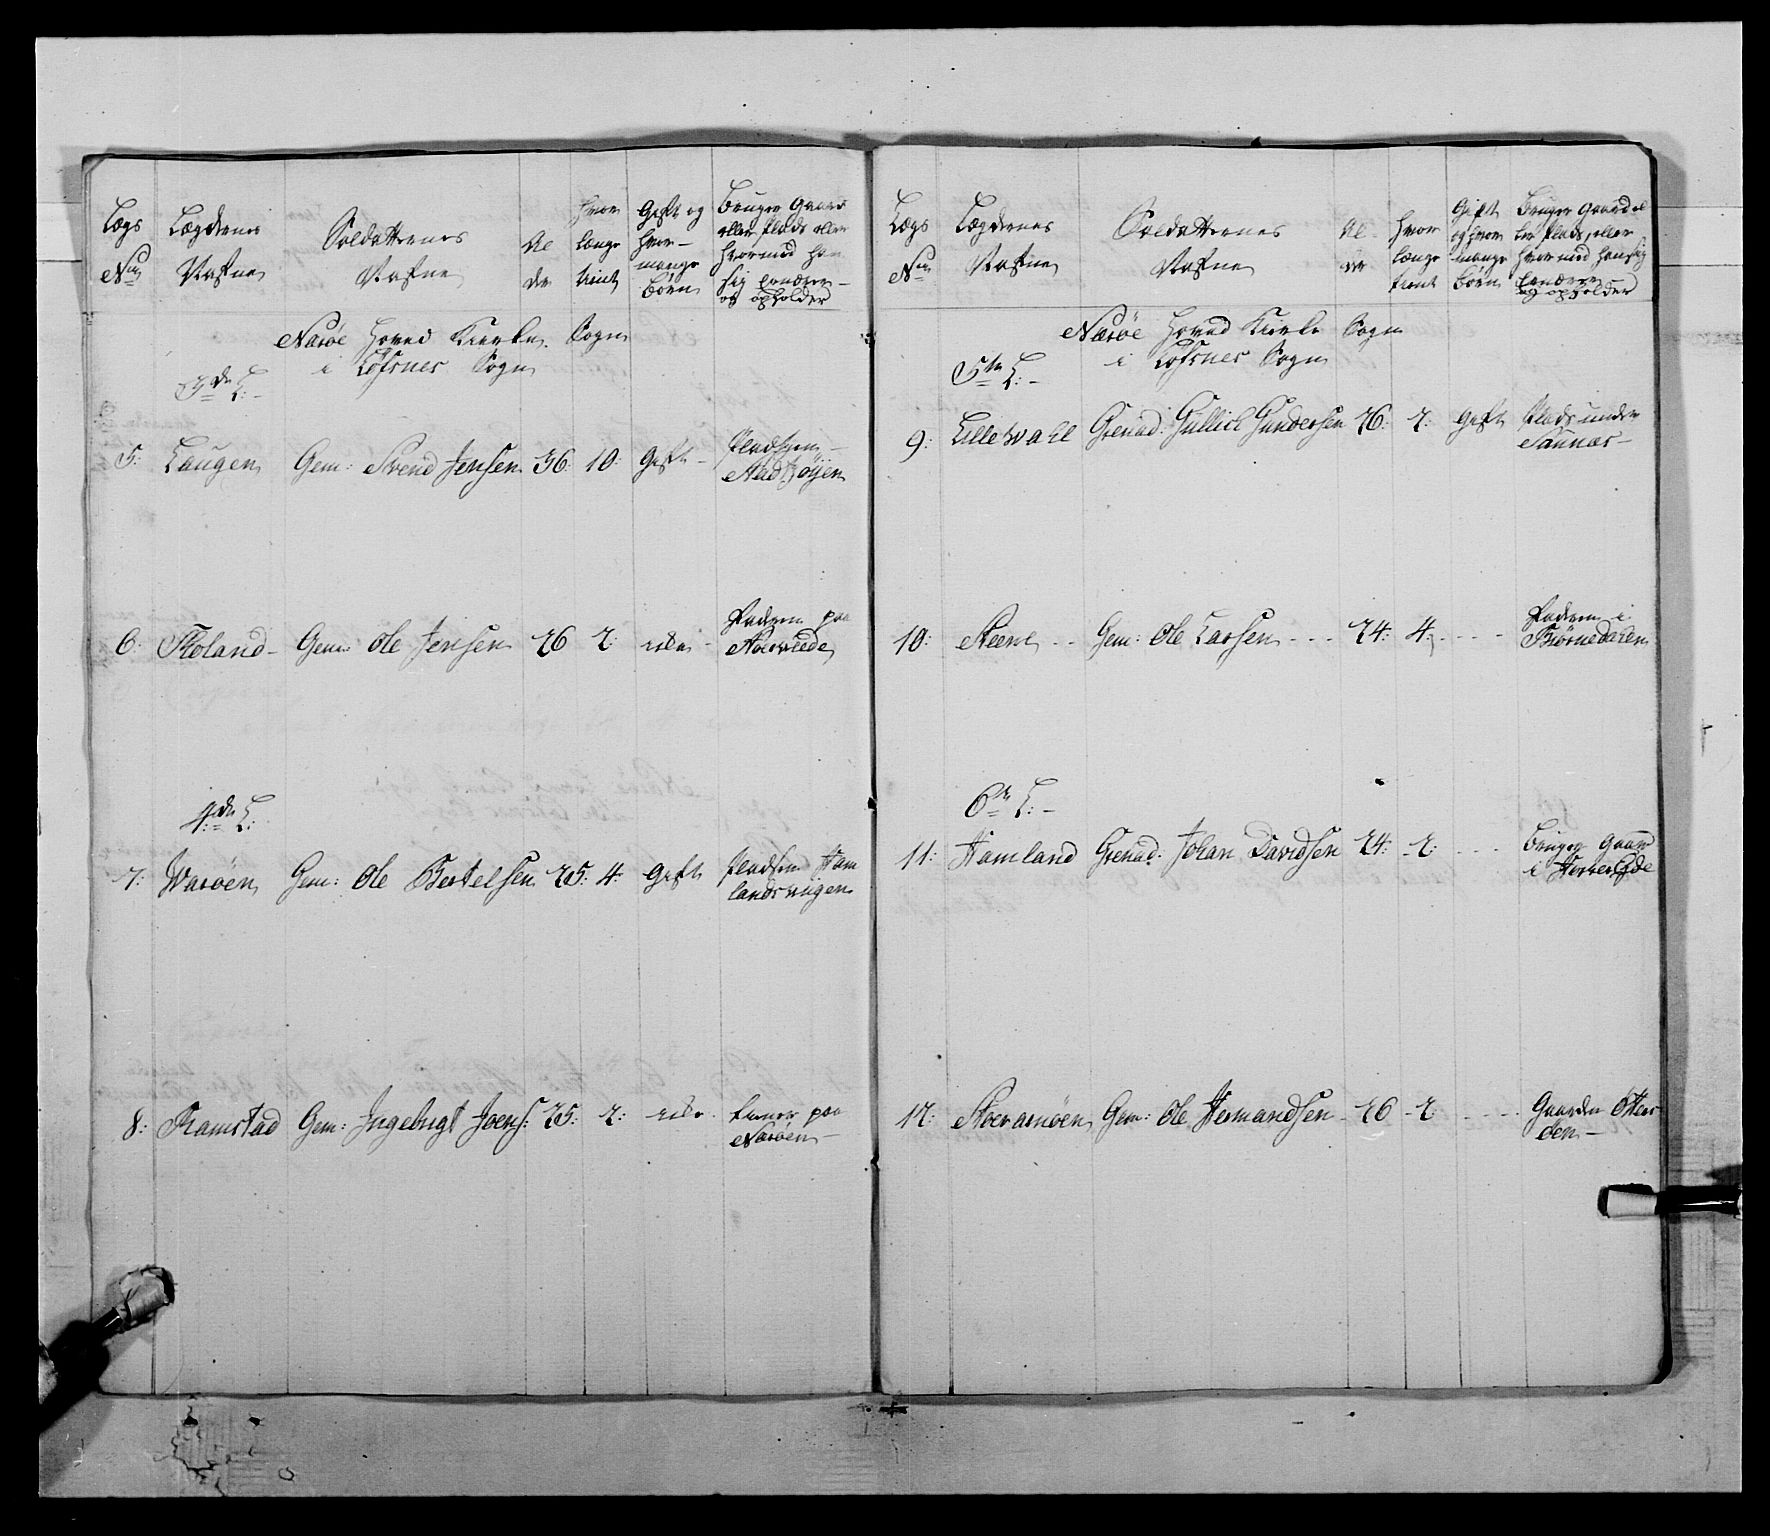 Lægs
No
Lægdernes
Nafne
Soldatternes
Nafne
Al
der
hvor
længe
tient
Gift og
hvor
mange
Børn
Bruger Gaard
eller Plads eller
hvormed han
sig ernærer
og opholder
Narøe Hoved Kierke Sogn
i Lofsnes Sogn
3de L:
5: Laugen Gem: Svend Jensen 36 10: Gift Pladsen
Aad
6: Floland Gem: Ole Jensen 26 2: Faderen paa
4de L:
7: Warøen Gem: Ole Bertelsen 25: 4: Gift Pladsen Ham
landsviigen
8: Ramstad Gem: Ingebrigt Joens: 25: 2: tiener paa
Narøen
Lægs
No
Lægdernes
Nafne
Soldatternes
Nafne
Al
der
hvor
længe
tient
Gift
og hvor
mange
Børn
Bruger Gaard el
ler Plads, eller
hvormed han sig
ernærer
og opholder
Narøe Hoved Kierke Sogn
i Lofsnes Sogn
5te L:
9: Lille Wahl Grenad: Gullich Gundersen 26: 2: Gift Plads under
Saunas
10: Steene Gem: Ole Larsen 24: 4: Faderen i
Biørnedalen
6te L:
11: Hamland Grenad: Johan Davidsen 24: 2: Bruger Gaard
i
12: Gem: Ole Hermandsen 26 2 Gaarden Otters
öen